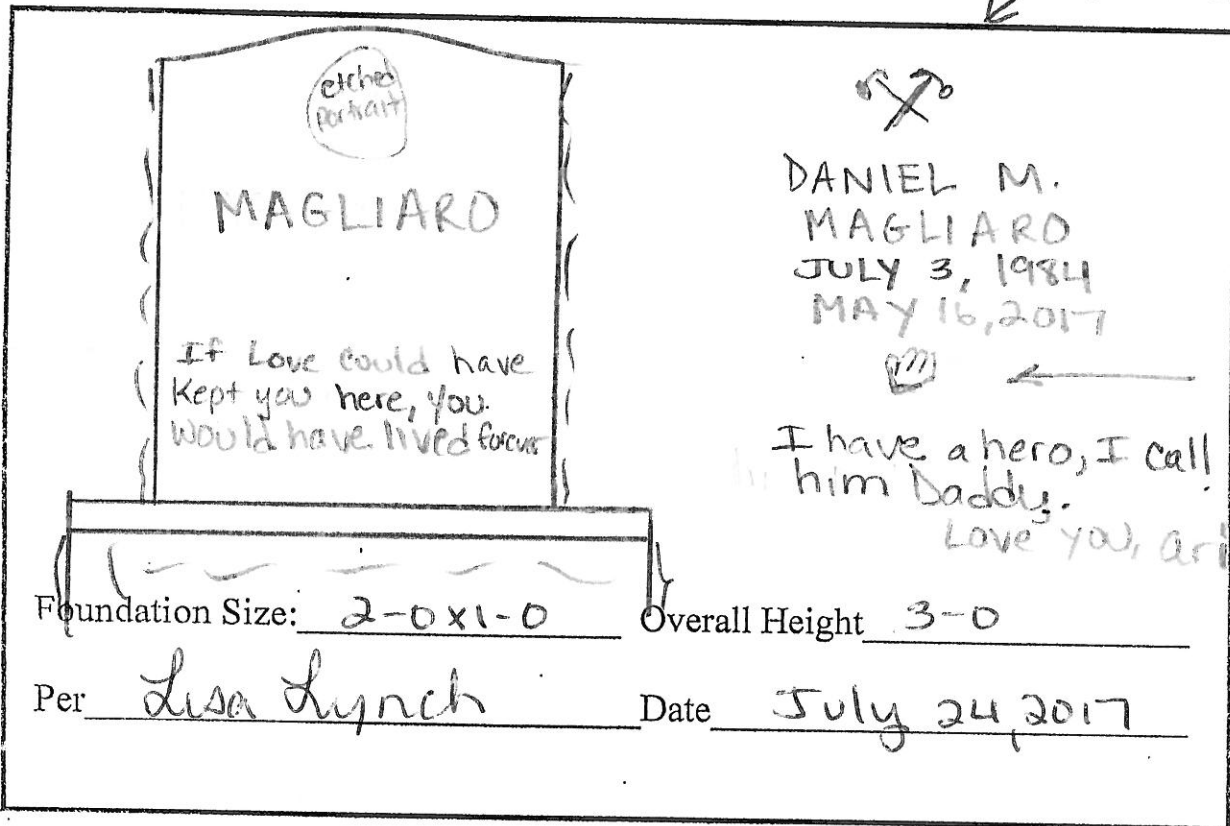 etched
portrait
MAGLIARO
If Love could have
Kept you here, you.
would have lived forever
DANIEL M.
MAGLIARO
JULY 3, 1984
MAY 16, 2017
I have a hero, I call
him Daddy.
Love you, ari
Foundation Size: 2-0x1-0 Overall Height 3-0
Per Lisa Lynch Date July 24, 2017